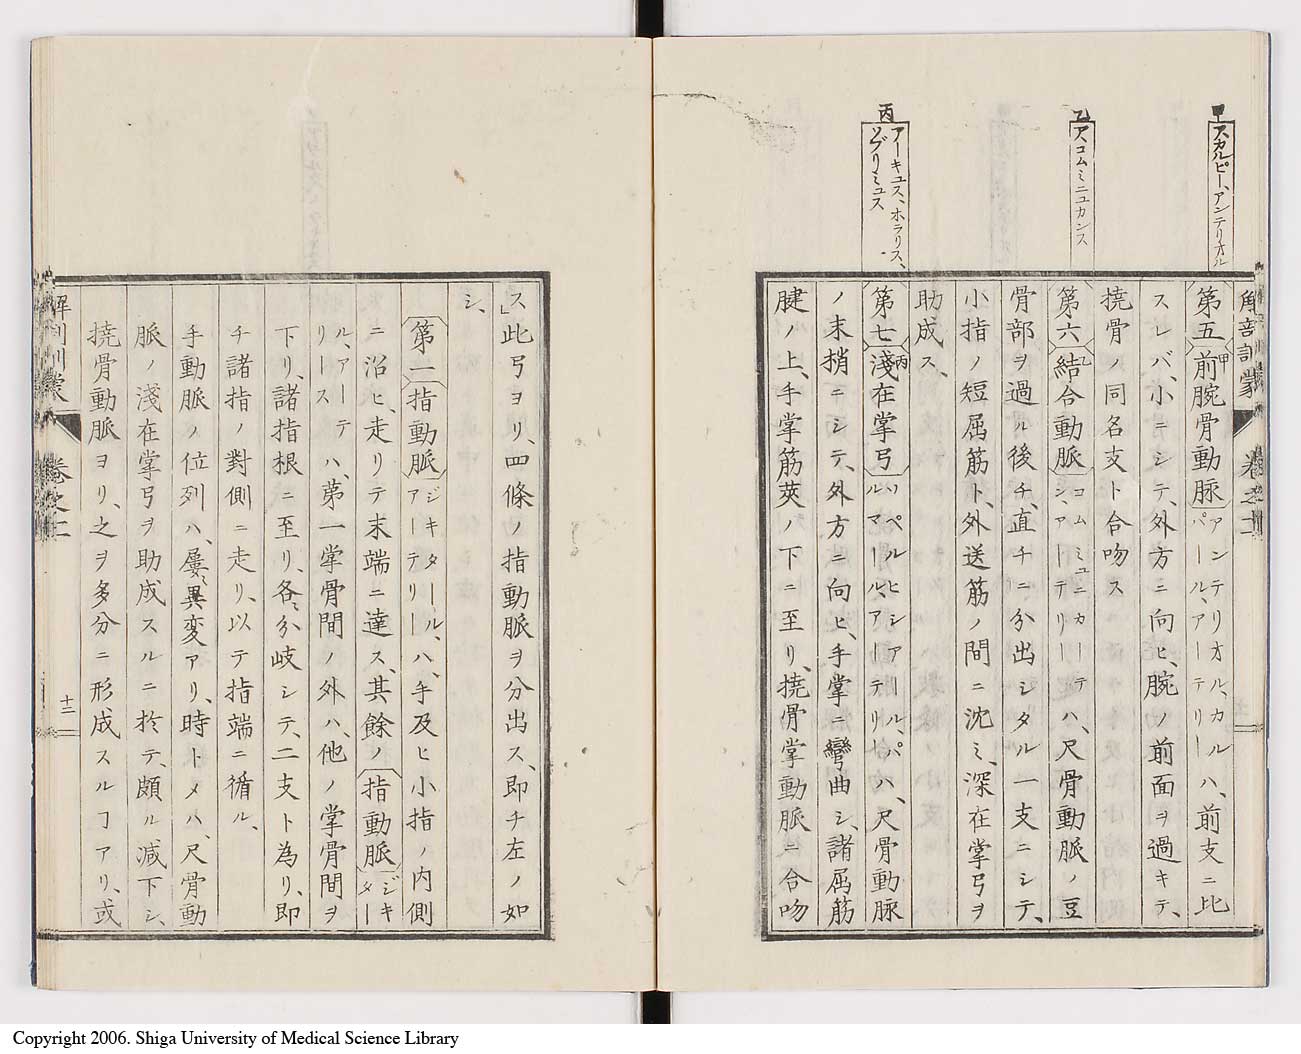 甲
アスカルピー、アンテリオル
乙
アコムミニュカンス
丙
アーキュス、ホラリス、
ソブリミュス
解剖訓蒙
卷之二
第五前腕骨動脈アンテリオル、カルパール、アーテリーハ、前支ニ比
甲
スレバ、小ニシテ、外方ニ向ヒ、腕ノ前面ヲ過キテ、
撓骨ノ同名支ト合吻ス
第六結合動脈コムミュニカーテシアーテリーハ、尺骨動脈ノ豆
乙
骨部ヲ過ル後チ、直チニ分出シタル一支ニシテ、
小指ノ短屈筋ト、外送筋ノ間ニ沈ミ、深在掌弓ヲ
助成ス、
第七淺在掌弓ハペルヒシアール、パルマール、アーテリーハ、尺骨動脉
丙
ノ末梢ニシテ、外方ニ向ヒ、手掌ニ彎曲シ、諸屈筋
腱ノ上、手掌筋莢ノ下ニ至リ、撓骨掌動脈ニ合吻
ス」此弓ヨリ、四條ノ指動脈ヲ分出ス、即チ左ノ如
シ、
第一指動脈ジキタール、アーテリーハ、手及ヒ小指ノ内側
ニ沿ヒ、走リテ末端ニ達ス、其餘ノ指動脈ジキター
ル、アーテリースハ、第一掌骨間ノ外ハ、他ノ掌骨間ヲ
下リ、諸指根ニ至リ、各々分岐シテ、二支ト為リ、即
チ諸指ノ對側ニ走リ、以テ指端ニ循ル、
手動脈ノ位列ハ、屢々異変アリ、時トメハ、尺骨動
脈ノ淺在掌弓ヲ助成スルニ於テ、頗ル減下シ、
撓骨動脈ヨリ、之ヲ多分ニ形成スルコアリ、或
解剖訓蒙
卷之二
十二
Copyright 2006. Shiga University of Medical Science Library